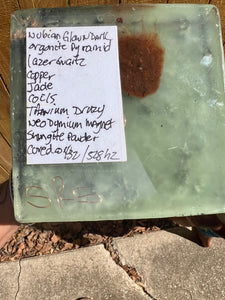 Nubian Glow N Dark
organite Pyramid
Lazer Quartz
Copper
Jade
Coils
Titanium Druzy
Neodymium Magnet
Shungite Powder
Cored 432/528hz